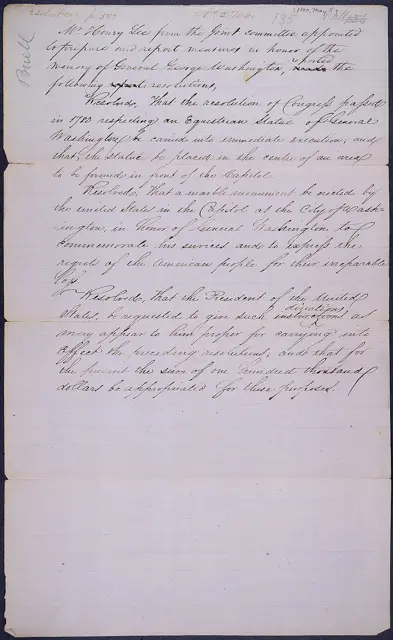 135
Buell
Mr Henry Lee from the Joint committee appointed
to prepare and report measures in honor of the
memory of General George Washington, reported the
following resolutions,
Resolved, That the resolution of Congress passed
in 1783 respecting an Equestrian Statue of General
Washington, be carried into immediate execution; and
that, the statue be placed in the center of an area
to be formed in front of the Capitol.
Resolved, That a marble monument be erected by
the united States in the Capitol at the City of Wash-
ington, in Honor of General Washington to
commemorate his services and to express the
regrets of the American people for their irreparable
loss.
Resolved, that the President of the United
directions
States, be requested to give such instructions, as
may appear to him proper for carrying into
effect the preceding resolutions, and that for
the present the sum of one hundred thousand
dollars be appropriated for these purposes.